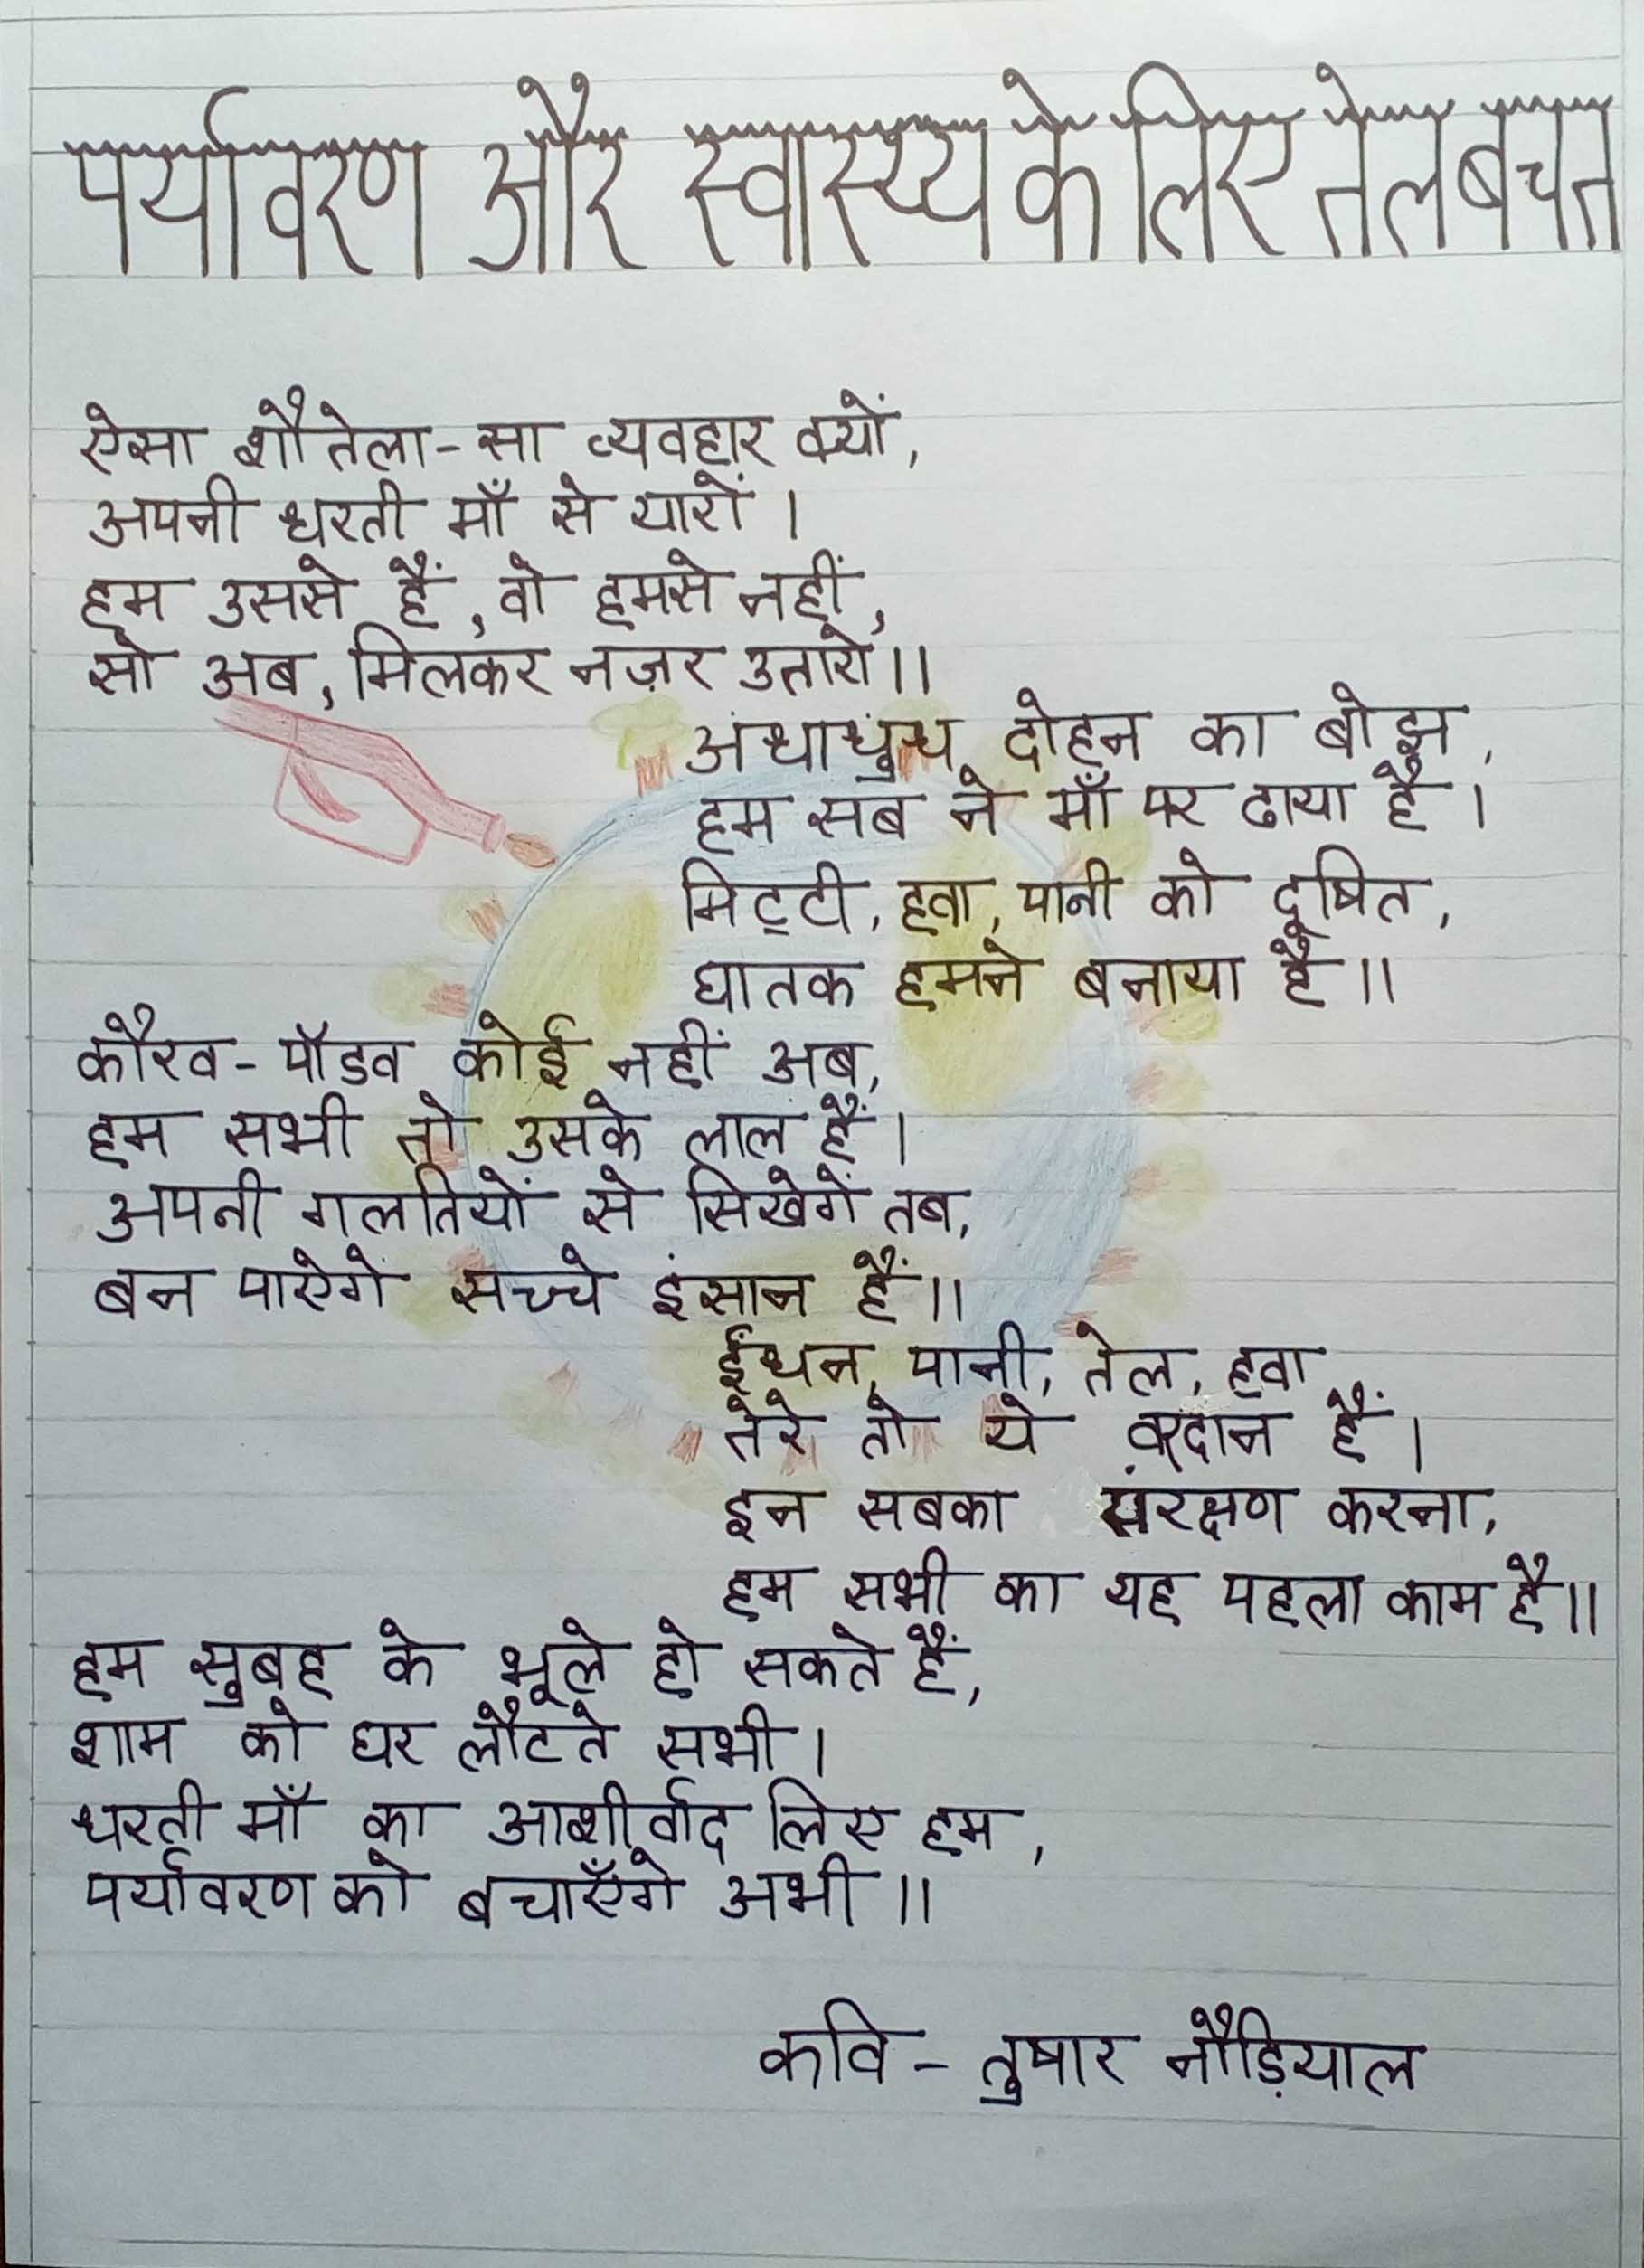 पर्यावरण और स्वास्थ्य के लिए तेल बचत
ऐसा शौतेला-सा व्यवहार क्यों,
अपनी धरती माँ से यारों।
हम उससे हैं, वो हमसे नहीं,
सो अब, मिलकर नज़र उतारो॥
अंधाधुंध दोहन का बोझ,
हम सब ने माँ पर ढाया है।
मिट्टी, हवा, पानी को दूषित,
घातक हमने बनाया है॥
कौरव-पॉडव कोई नहीं अब,
हम सभी तो उसके लाल हैं।
अपनी गलतियों से सिखेगें तब,
बन पाऐगें सच्चे इंसान हैं॥
ईंधन, पानी, तेल, हवा
तेरे तो ये वरदान हैं।
इन सबका संरक्षण करना,
हम सभी का यह पहला काम है॥
हम सुबह के भूले हो सकते हैं,
शाम को घर लौटते सभी।
धरती माँ का आशीर्वाद लिए हम,
पर्यावरण को बचाएँगे अभी॥
कवि - तुषार नौड़ियाल